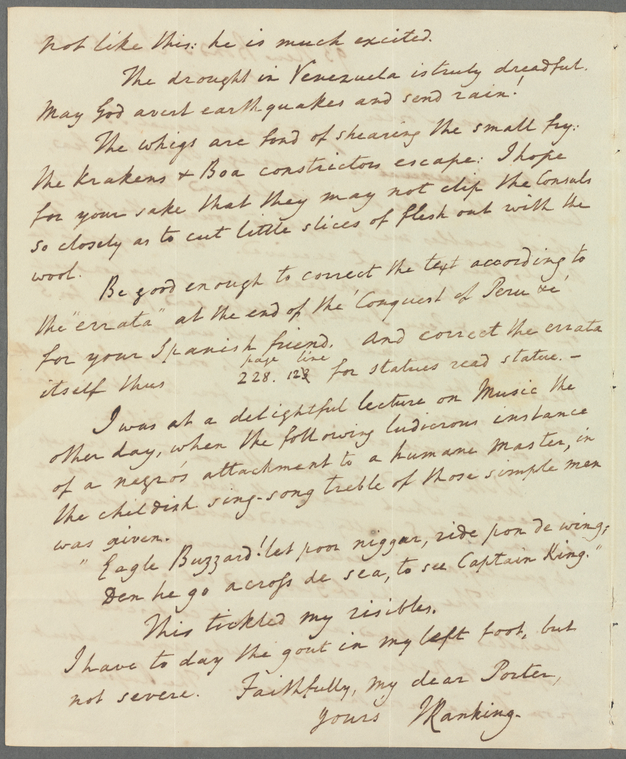 not like this: he is much excited.
The drought in Venezuela is truly dreadful.
May God avert earthquakes and send rain!
The whigs are fond of shearing the small fry:
the Krakens & Boa constrictors escape: I hope
for your sake that they may not clip the Consuls
so closely as to cut little slices of flesh out with the
wool.
Be good enough to correct the text according to
the "errata" at the end of the 'Conquest of Peru &c'
for your Spanish friend. And correct the errata
page line
itself thus 228. 123 for statues read statue. –
I was at a delightful lecture on Music the
other day, when the following ludicrous instance
of a negro's attachment to a humane master, in
the childish sing-song treble of those simple men
was given.
"Eagle Buzzard! let poor niggar, ride pon de wing;
Den he go across de sea, to see Captain King."
This tickled my risibles.
I have to day the gout in my left foot, but
not severe. Faithfully, my dear Porter,
yours JRanking.